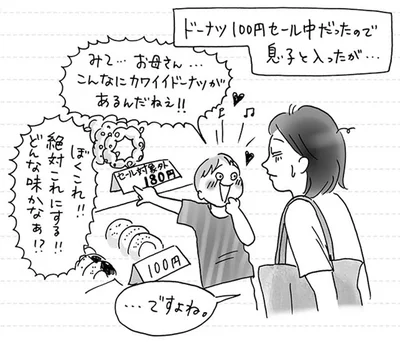 ドーナツ100円セール中だったので
息子と入ったが…
みて… お母さん…
こんなにカワイイドーナツが
あるんだねえ!!
ぼくこれ!!
絶対これにする!!
どんな味かなぁ!?
セール対象外
180円
100円
…ですよね。